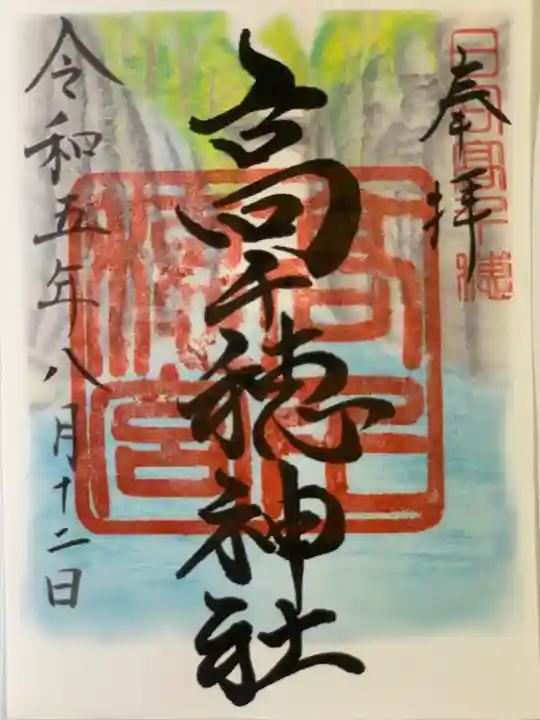 奉拝
日向高千穂
高千穂神社
高千穂宮
令和五年八月十二日